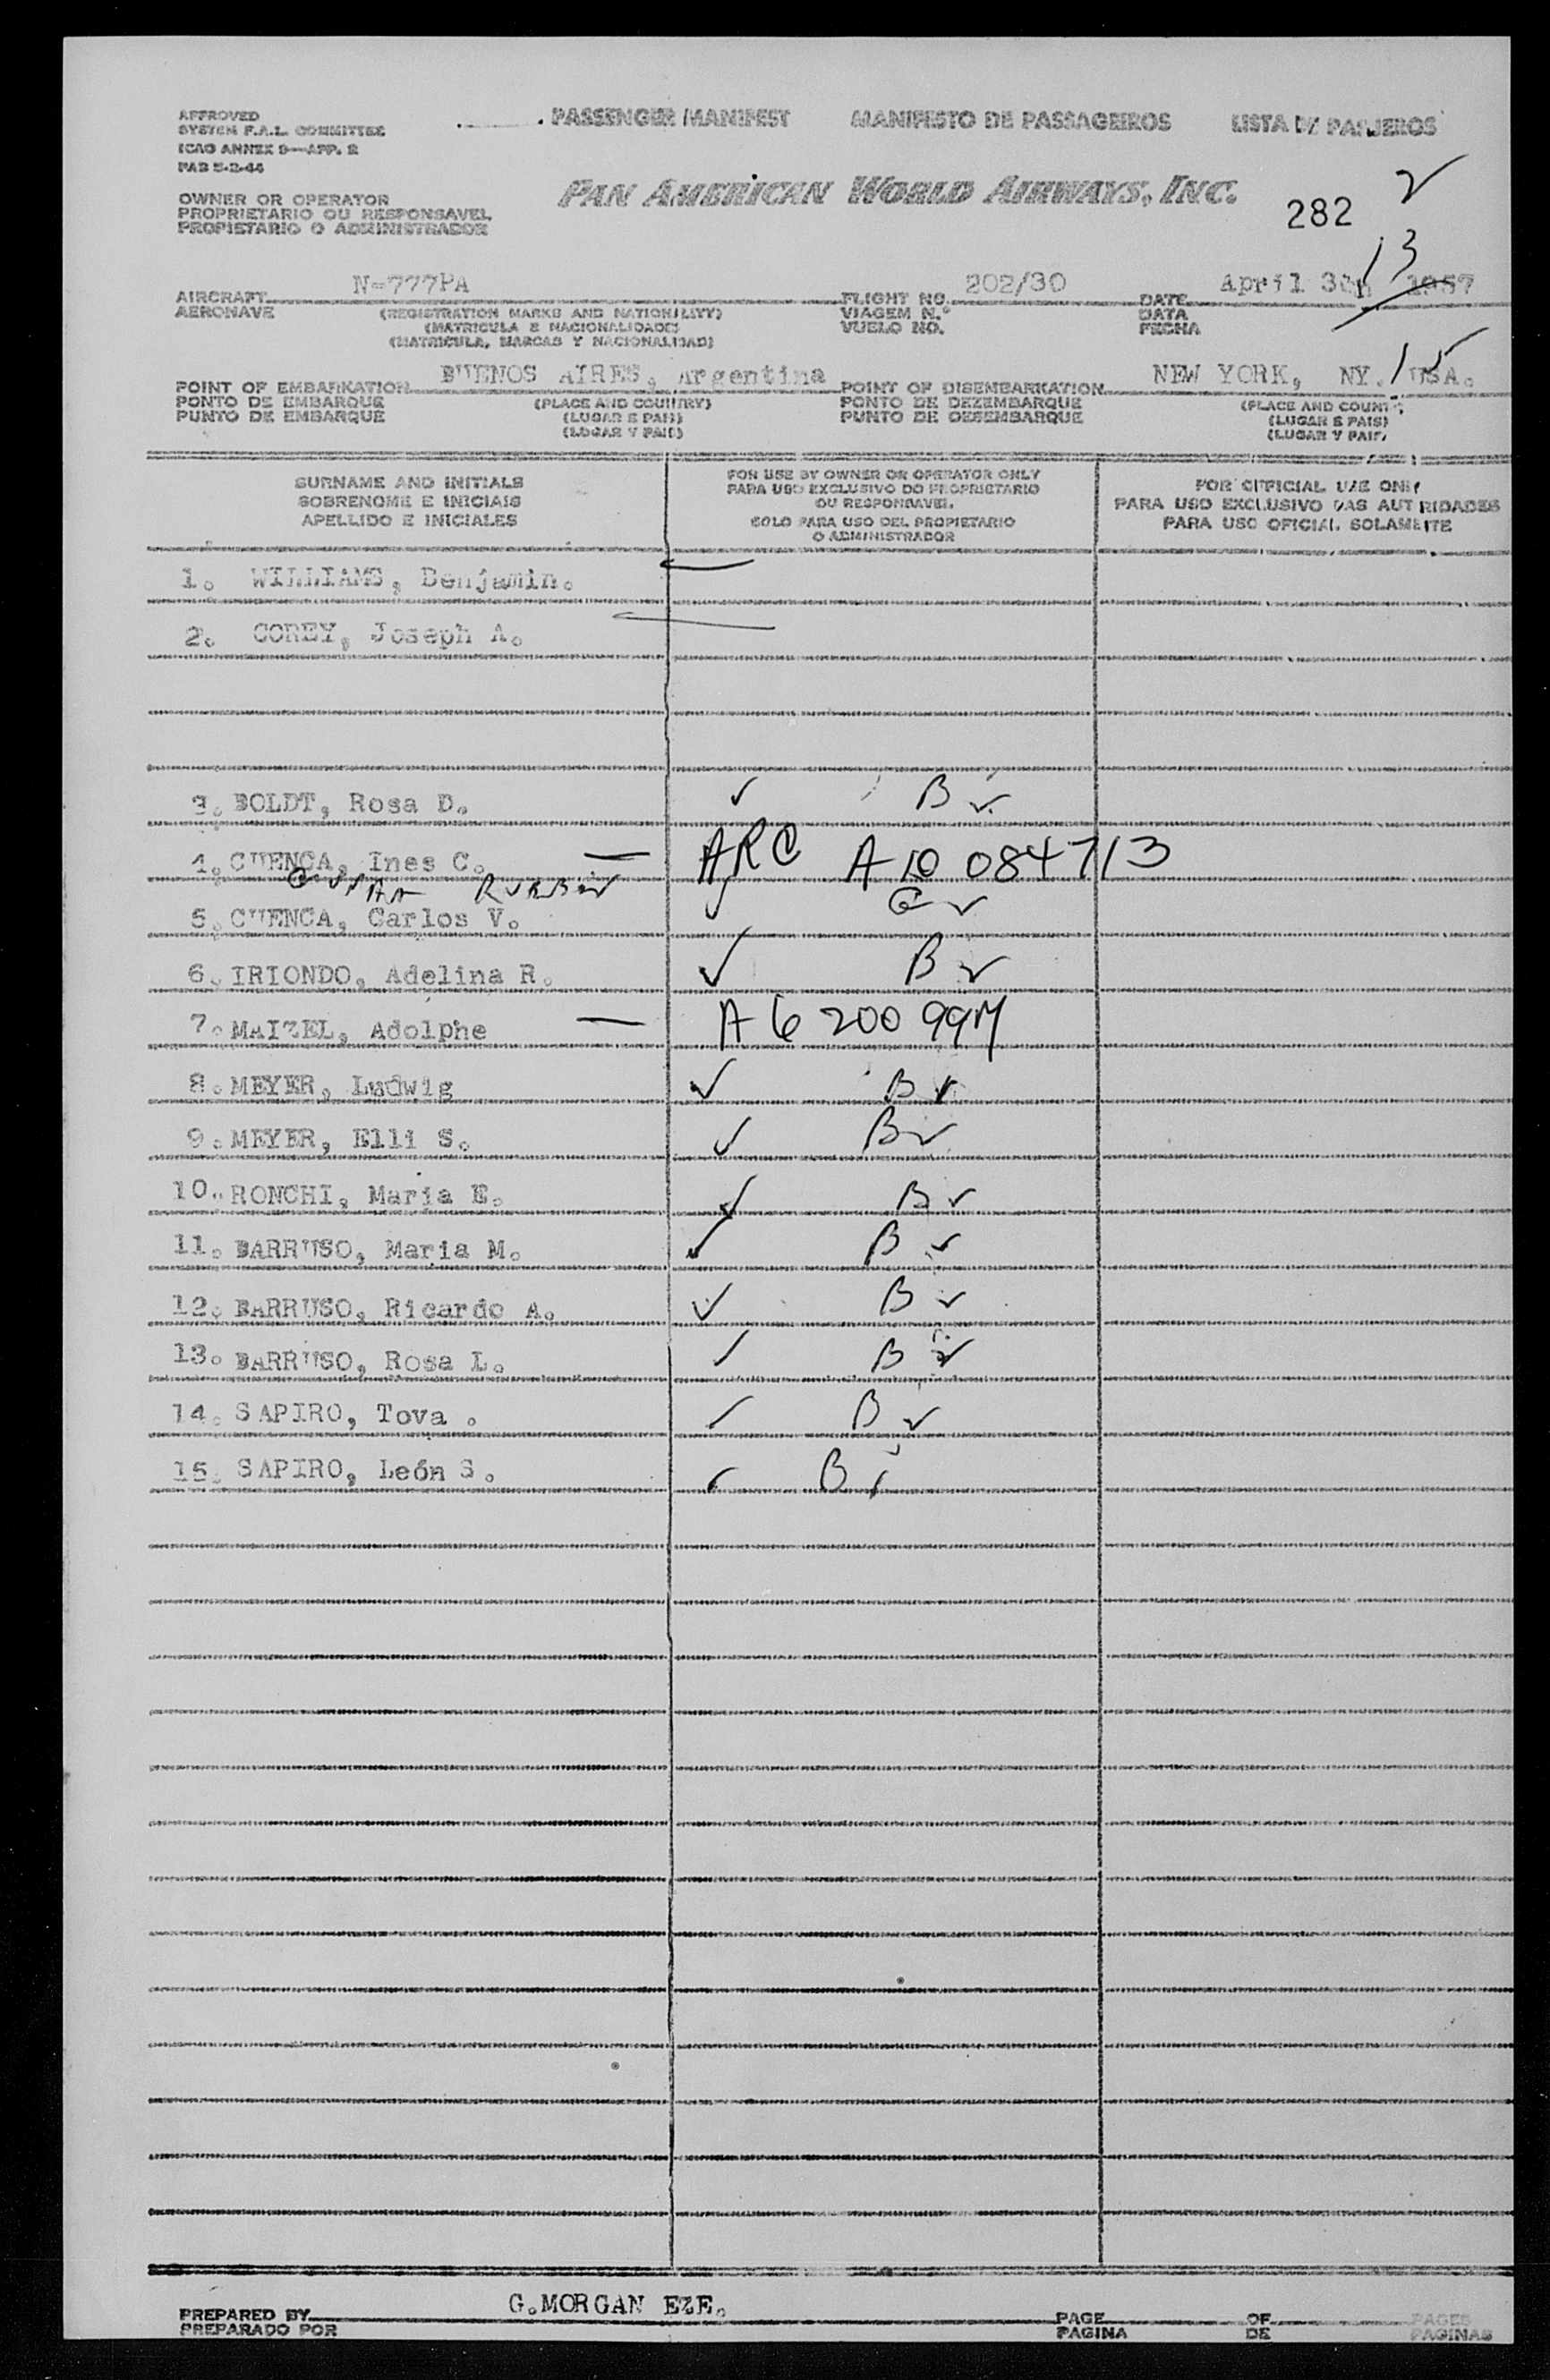 APPROVED
SYSTEM F.A.L. COMMITTEE
ICAO ANNEX 9—APP. 2
PAB 5-2-44
PASSENGER MANIFEST MANIFESTO DE PASSAGEIROS LISTA DE PASAJEROS
PAN AMERICAN WORLD AIRWAYS, INC.
282
OWNER OR OPERATOR
PROPRIETARIO OU RESPONSAVEL
PROPIETARIO O ADMINISTRADOR
13
AIRCRAFT N-777PA FLIGHT NO. 202/30 DATE April 30th 1957
AERONAVE (REGISTRATION MARKS AND NATIONALITY) VIAGEM N.º DATA
(MATRICULA E NACIONALIDADE) VUELO NO. FECHA
(MATRICULA, MARCAS Y NACIONALIDAD)
POINT OF EMBARKATION BUENOS AIRES, Argentina POINT OF DISEMBARKATION NEW YORK, NY. USA.
PONTO DE EMBARQUE (PLACE AND COUNTRY) PONTO DE DEZEMBARQUE (PLACE AND COUNT
PUNTO DE EMBARQUE (LUGAR E PAIS) PUNTO DE DESEMBARQUE (LUGAR E PAIS)
(LUGAR Y PAIS) (LUGAR Y PAIS)
SURNAME AND INITIALS
SOBRENOME E INICIAIS
APELLIDO E INICIALES
FOR USE BY OWNER OR OPERATOR ONLY
PARA USO EXCLUSIVO DO PROPRIETARIO
OU RESPONSAVEL
SOLO PARA USO DEL PROPIETARIO
O ADMINISTRADOR
FOR OFFICIAL USE ONLY
PARA USO EXCLUSIVO DAS AUTORIDADES
PARA USO OFICIAL SOLAMENTE
1. WILLIAMS, Benjamin.
2. COREY, Joseph A.
3. BOLDT, Rosa D. ✓ B ✓
4. CUENCA, Ines C. — ARC A10 084713
5. CUENCA, Carlos V. ✓ G ✓
6. IRIONDO, Adelina R. ✓ B ✓
7. MAIZEL, Adolphe — A6 200 994
8. MEYER, Ludwig ✓ B ✓
9. MEYER, Elli S. ✓ B ✓
10. RONCHI, Maria E. ✓ B ✓
11. BARRUSO, Maria M. ✓ B ✓
12. BARRUSO, Ricardo A. ✓ B ✓
13. BARRUSO, Rosa L. ✓ B ✓
14. SAPIRO, Tova . ✓ B ✓
15. SAPIRO, León S. ✓ B ✓
PREPARED BY G.MORGAN EZE. PAGE OF PAGES
PREPARADO POR PAGINA DE PAGINAS